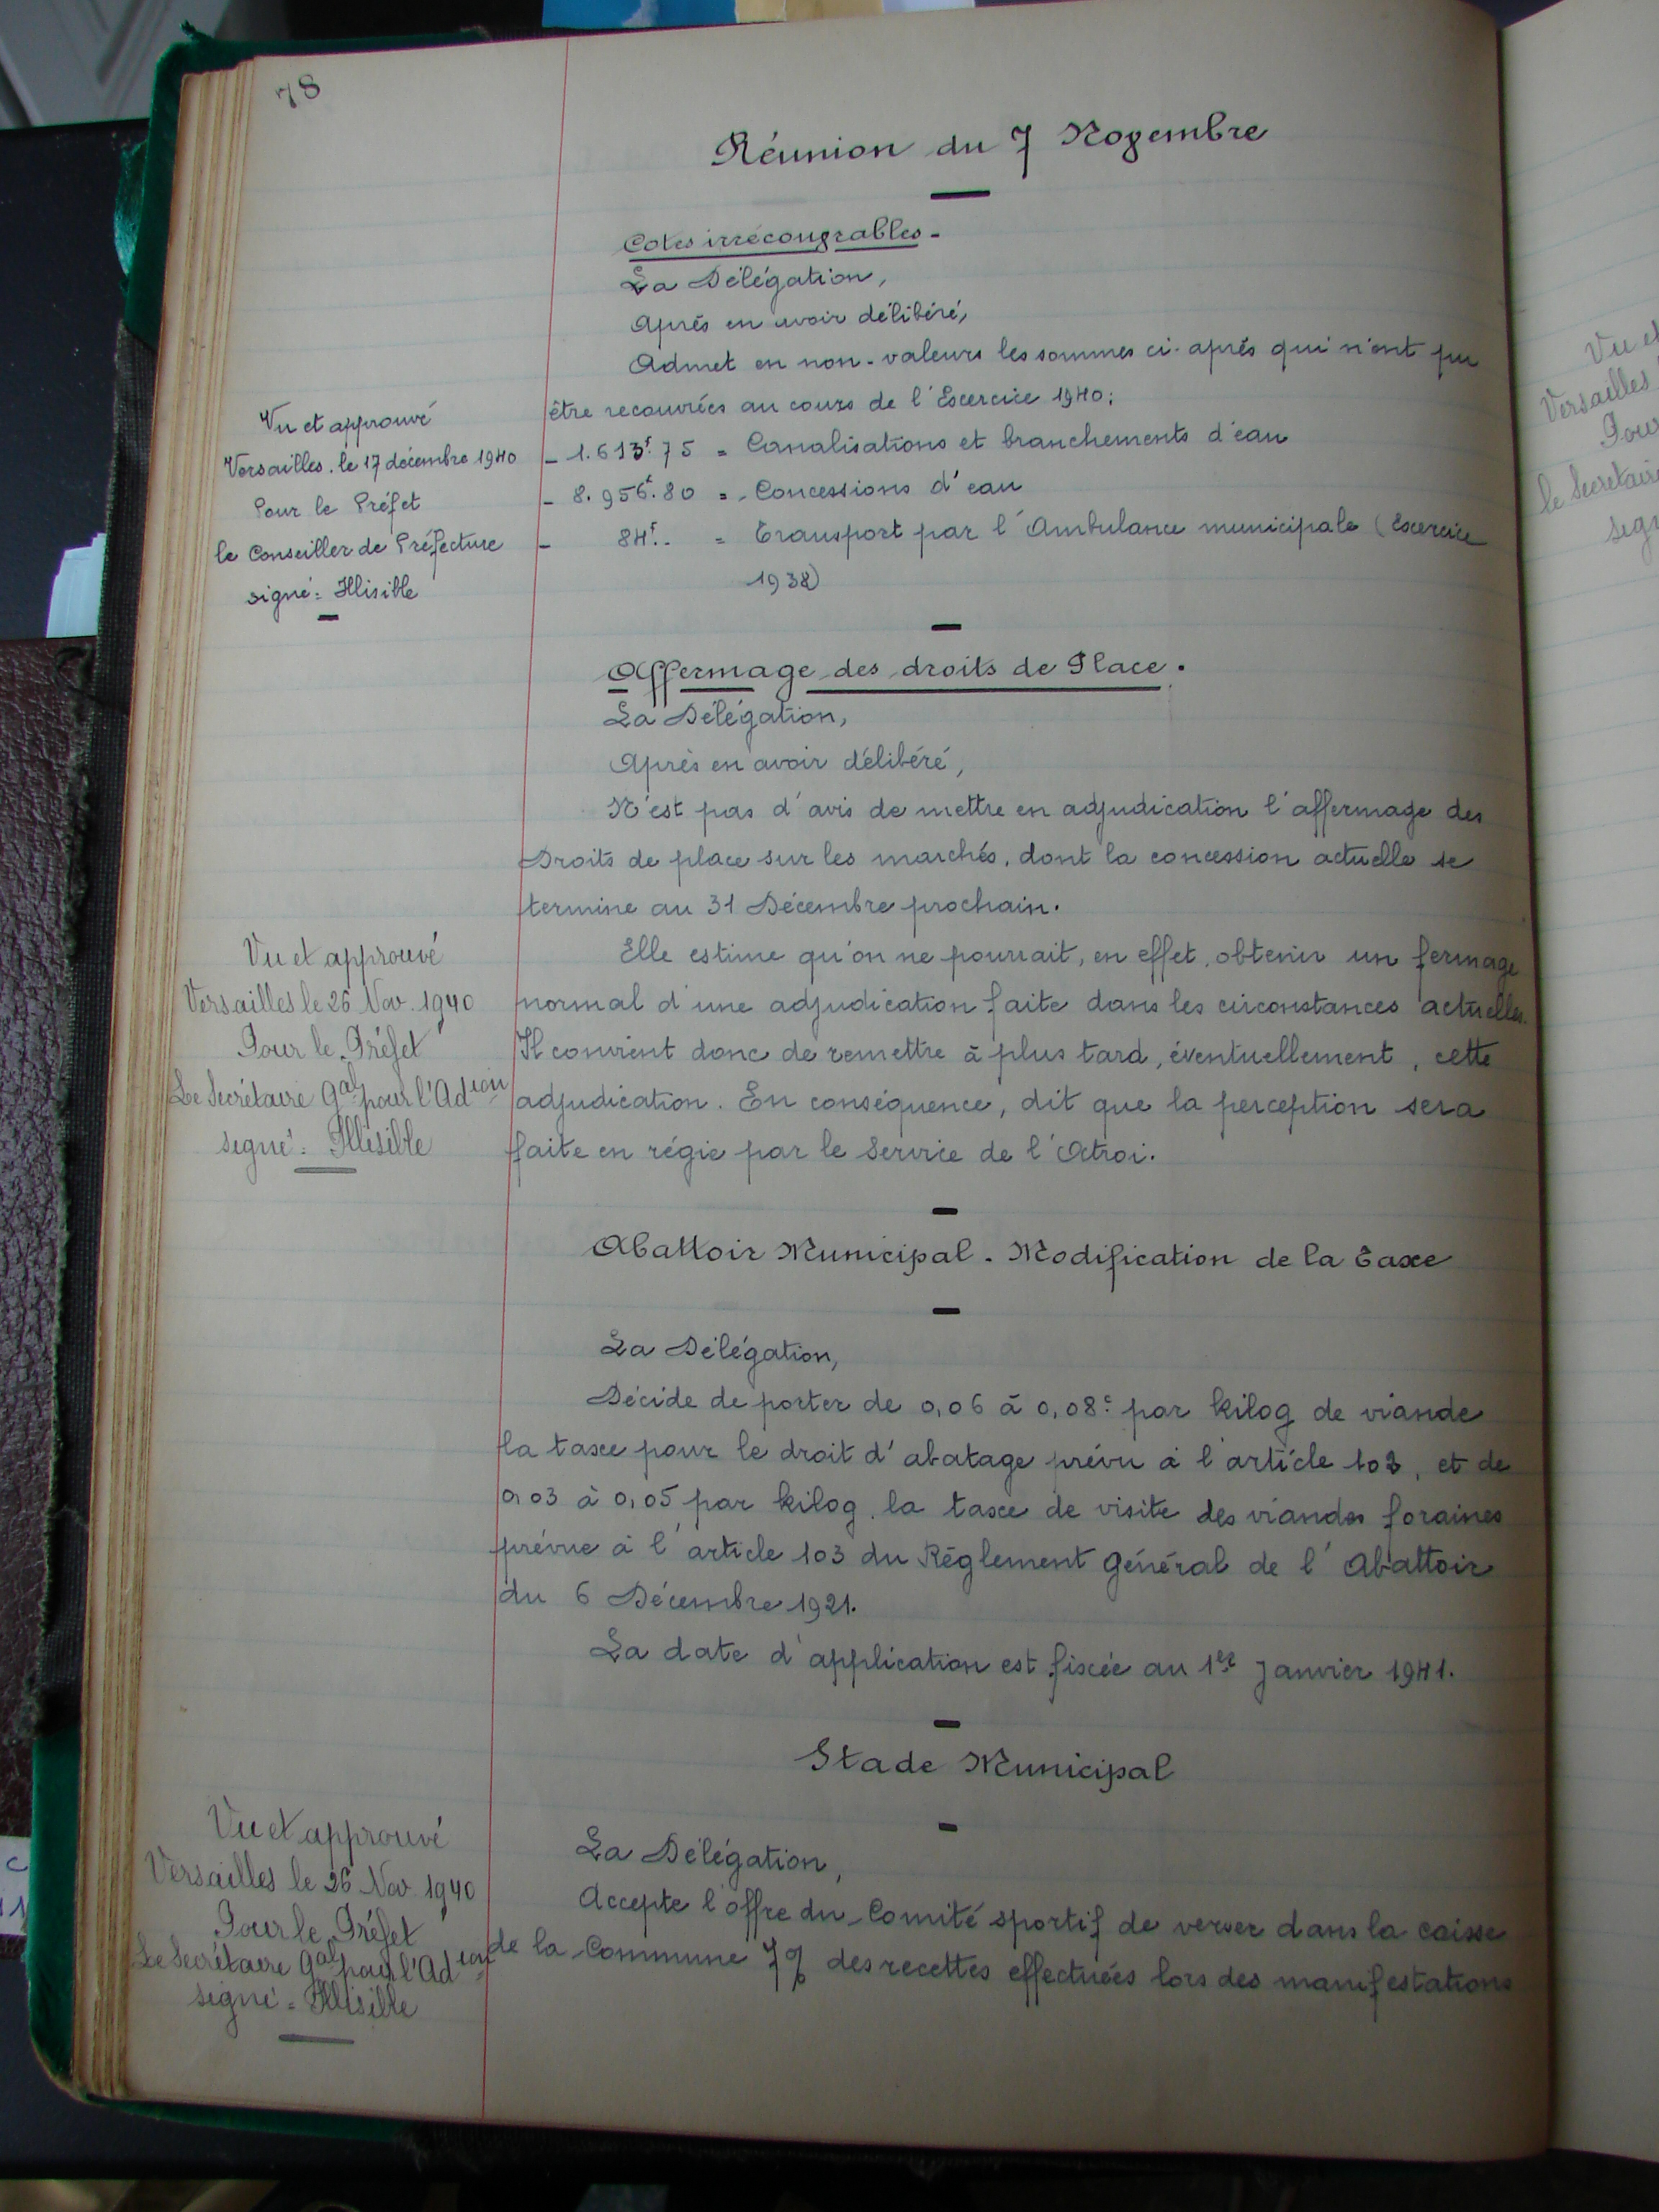 78
Réunion du 7 Novembre
Cotes irrécouvrables -
La Délégation,
Après en avoir délibéré,
Admet en non-valeurs les sommes ci-après qui n'ont pu
être recouvrées au cours de l'Exercice 1940 :
- 1.613f.75 = Canalisations et branchements d'eau
- 8.956f.80 = Concessions d'eau
- 84f.. = Transport par l'Ambulance municipale (Exercice
1938)
Vu et approuvé
Versailles, le 17 décembre 1940
Pour le Préfet
le Conseiller de Préfecture
signé : Illisible
Affermage des droits de Place.
La Délégation,
Après en avoir délibéré,
N'est pas d'avis de mettre en adjudication l'affermage des
Droits de place sur les marchés, dont la concession actuelle se
termine au 31 Décembre prochain.
Elle estime qu'on ne pourrait, en effet, obtenir un fermage
normal d'une adjudication faite dans les circonstances actuelles.
Il convient donc de remettre à plus tard, éventuellement, cette
adjudication. En conséquence, dit que la perception sera
faite en régie par le Service de l'Octroi.
Vu et approuvé
Versailles le 26 Nov. 1940
Pour le Préfet
Le Secrétaire Gal pour l'Adion
signé : Illisible
Abattoir Municipal - Modification de la Taxe
La Délégation,
Décide de porter de 0,06 à 0,08c par kilog de viande
la taxe pour le droit d'abatage prévu à l'article 102, et de
0,03 à 0,05 par kilog, la taxe de visite des viandes foraines
prévue à l'article 103 du Règlement Général de l'Abattoir
du 6 Décembre 1921.
La date d'application est fixée au 1er Janvier 1941.
Stade Municipal
La Délégation,
Accepte l'offre du Comité sportif de verser dans la caisse
de la Commune 7% des recettes effectuées lors des manifestations
Vu et approuvé
Versailles le 26 Nov. 1940
Pour le Préfet
Le Secrétaire Gal pour l'Adion
signé = Illisible
Vu et
Versailles
Pour
le Secrétaire
sign